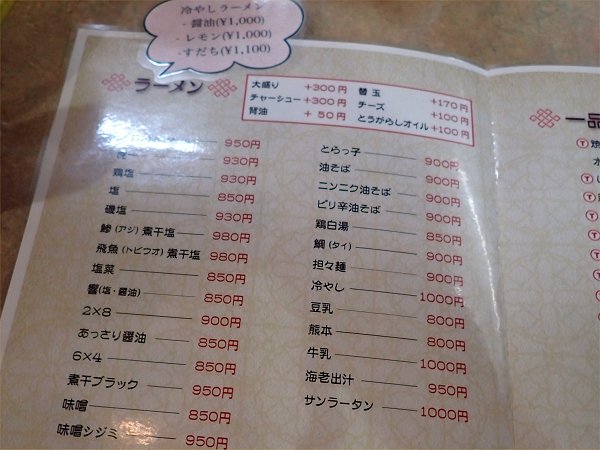 冷やしラーメン
- 醤油(¥1,000)
- レモン(¥1,000)
- すだち(¥1,100)
ラーメン
大盛り +300円 替玉 +170円
チャーシュー+300円 チーズ +100円
背油 + 50円 とうがらしオイル+100円
950円
930円
鶏塩 930円
塩 850円
磯塩 930円
鯵(アジ)煮干塩 980円
飛魚(トビウオ)煮干塩 980円
塩菜 850円
響(塩・醤油) 850円
2×8 900円
あっさり醤油 850円
6×4 850円
煮干ブラック 950円
味噌 850円
味噌シジミ 950円
とらっ子 900円
油そば 900円
ニンニク油そば 900円
ピリ辛油そば 900円
鶏白湯 850円
鯛(タイ) 900円
担々麺 900円
冷やし 1000円
豆乳 800円
熊本 800円
牛乳 1000円
海老出汁 950円
サンラータン 1000円
一品